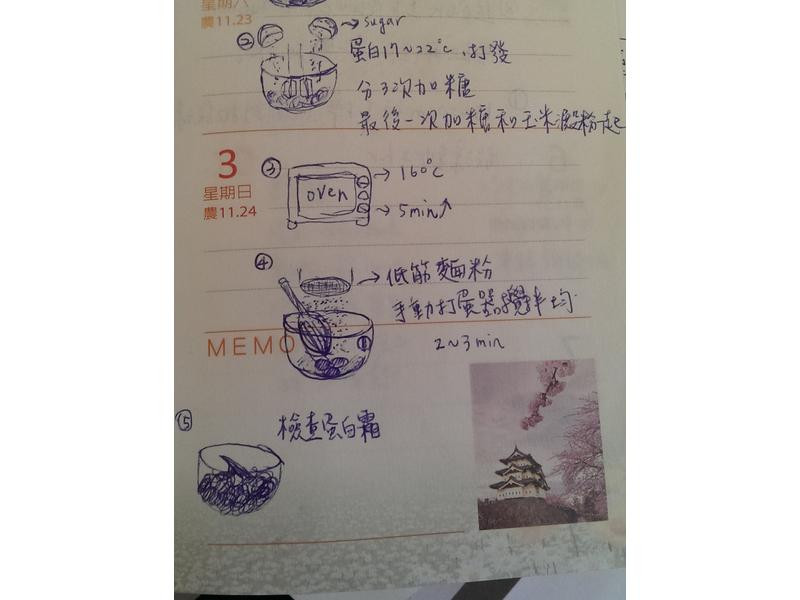 星期六
農11.23
② → sugar
蛋白17~22°c、打發
分3次加糖
最後一次加糖和玉米澱粉起
3
星期日
農11.24
③ oven → 160°c
→ 5min↑
④ → 低筋麵粉
手動打蛋器攪拌均
①
2~3min
MEMO
⑤ 檢查蛋白霜